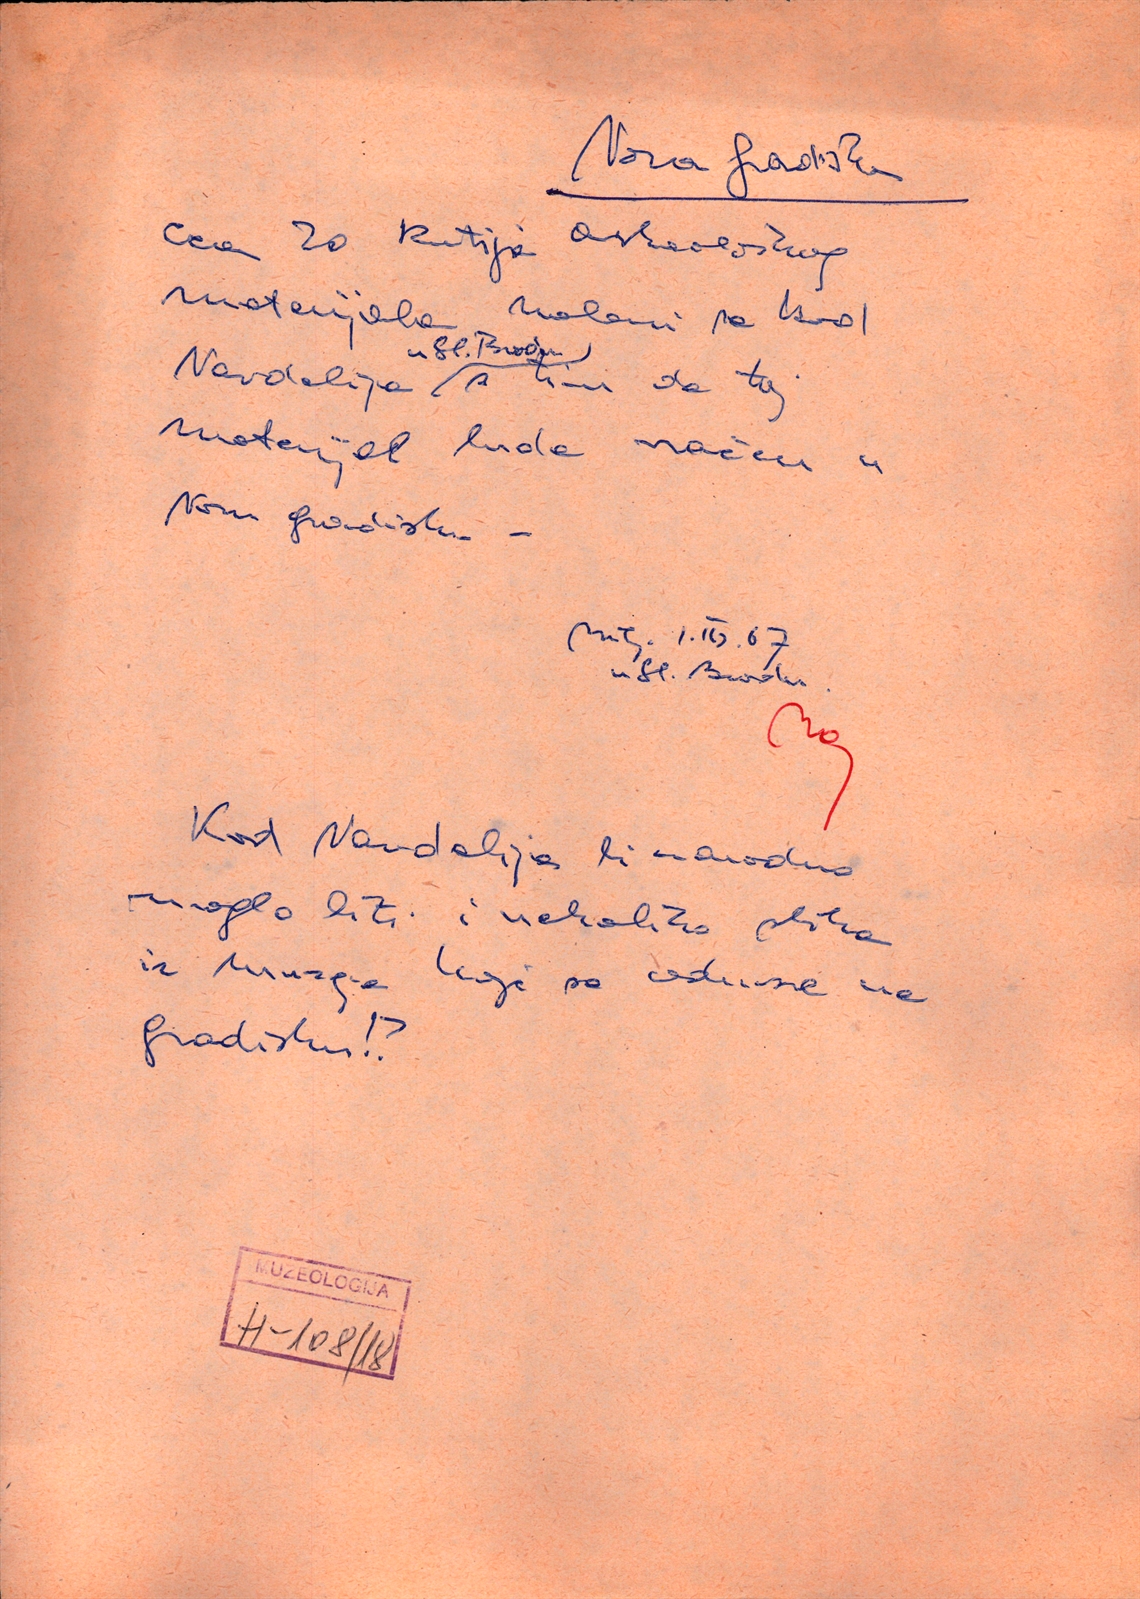 Nova Gradiška
cca 20 kutija arheološkog
materijala nalazi se kod
u Sl. Brodu
Nardelija s tim da taj
materijal bude vraćen u
Novu Gradišku –
1.III.67
u Sl. Brodu.
Kod Nardelija bi navodno
moglo biti i nekoliko slika
iz muzeja koji se odnose na
Gradišku!?
MUZEOLOGIJA
H-108/18